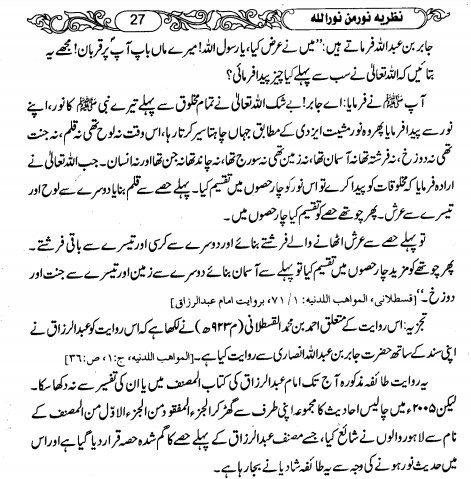 نظریہ نور من نور اللہ
27
جابر بن عبداللہ فرماتے ہیں: "میں نے عرض کیا، یا رسول اللہ! میرے ماں باپ آپؐ پر قربان! مجھے یہ
بتائیں کہ اللہ تعالیٰ نے سب سے پہلے کیا چیز پیدا فرمائی؟
آپ ﷺ نے فرمایا: اے جابر! بے شک اللہ تعالیٰ نے تمام مخلوق سے پہلے تیرے نبی ﷺ کا نور، اپنے
نور سے پیدا فرمایا پھر وہ نور مشیت ایزدی کے مطابق جہاں چاہتا سیر کرتا رہا، اس وقت نہ لوح تھی نہ قلم، نہ جنت
تھی نہ دوزخ، نہ فرشتہ تھا نہ آسمان تھا، نہ زمین تھی نہ سورج تھا، نہ چاند تھا نہ جن تھا اور نہ انسان۔ جب اللہ تعالیٰ نے
ارادہ فرمایا کہ مخلوقات کو پیدا کرے تو اس نور کو چار حصوں میں تقسیم کیا۔ پہلے حصے سے قلم بنایا دوسرے سے لوح اور
تیسرے سے عرش۔ پھر چوتھے حصے کو تقسیم کیا چار حصوں میں۔
تو پہلے حصے سے عرش اٹھانے والے فرشتے بنائے اور دوسرے سے کرسی اور تیسرے سے باقی فرشتے۔
پھر چوتھے کو مزید چار حصوں میں تقسیم کیا تو پہلے سے آسمان بنائے دوسرے سے زمین اور تیسرے سے جنت اور
دوزخ۔" [قسطلانی، المواھب اللدنیہ: ۱/ ۷۱، بروایت امام عبدالرزاق]
تجزیہ: اس روایت کے متعلق احمد بن محمد القسطلانی (م ۹۲۳ھ) نے لکھا ہے کہ اس روایت کو عبدالرزاق نے
اپنی سند کے ساتھ حضرت جابر بن عبداللہ انصاری سے روایت کیا ہے۔ [المواھب اللدنیہ، ج: ۱، ص: ۳۶]
یہ روایت طائفہ مذکورہ آج تک امام عبدالرزاق کی کتاب المصنف میں یا ان کی تفسیر سے نہ دکھا سکا۔
لیکن ۲۰۰۵ء میں چالیس احادیث کا مجموعہ اپنی طرف سے گھڑ کر الجزء المفقود من الجزء الاوّل من المصنف کے
نام سے لاہور والوں نے شائع کیا، جسے مصنف عبدالرزاق کے پہلے حصے کا گم شدہ حصہ قرار دیا گیا ہے اور اس
میں حدیث نور ہونے کی وجہ سے یہ طائفہ شادیانے بجا رہا ہے۔